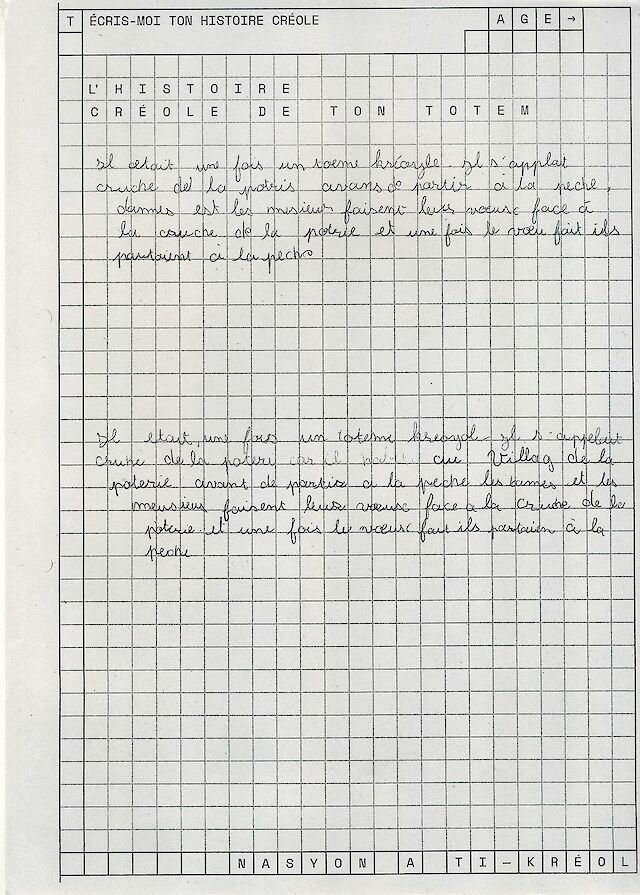 T ÉCRIS-MOI TON HISTOIRE CRÉOLE
AGE→
L'HISTOIRE
CRÉOLE DE TON TOTEM
Il etait une fois un toeme kréoyle. Il s'applat
cruche de la potris avans de partir a la peche,
dannes est les mesieur faisent leurs vœusc face à
la cruche de la poterie et une fois le vœu fait ils
partaient a la peche
Il etait une fois un toteme kreoyol. Il s'appelait
cruhe de la poteri car il au Villag de la
poterie avant de partir a la peche les tames et les
meusieus faisent leus vœusc face a la Cruche de la
poterie et une fois le vœusc fait ils partaien à la
peche
NASYON A TI-KRÉOL